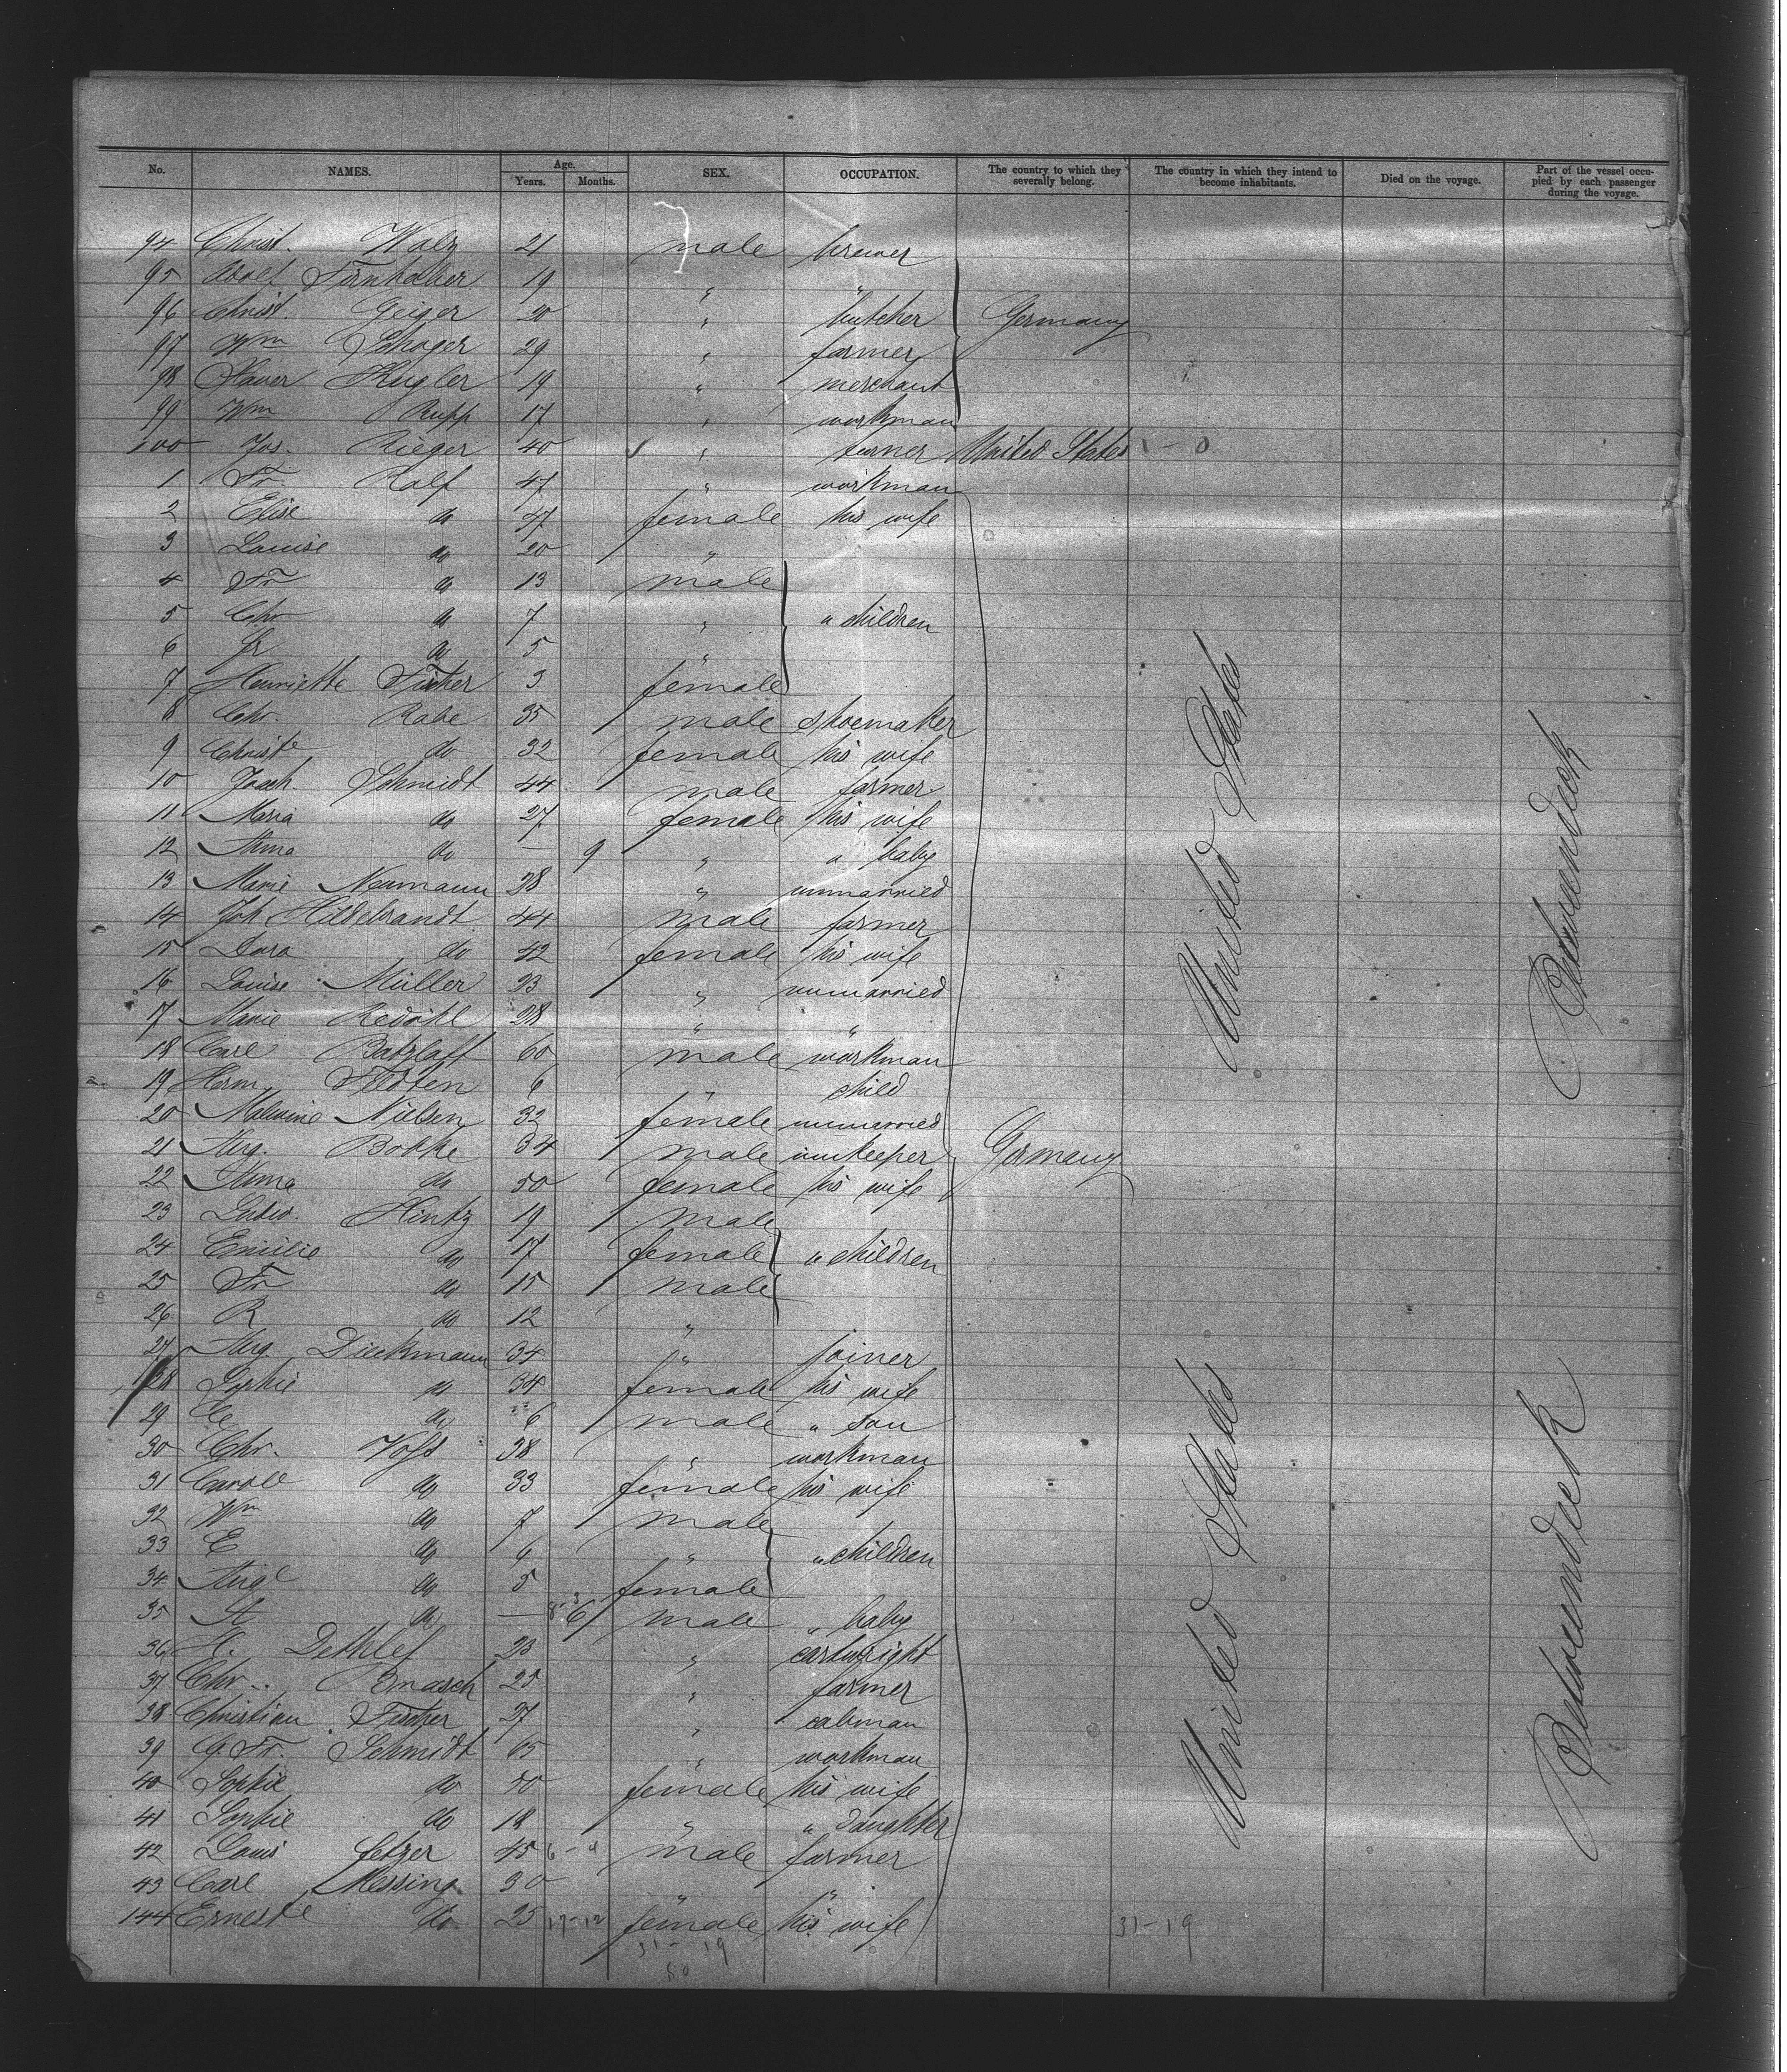 No. NAMES. Age. Years. Months. SEX. OCCUPATION. The country to which they severally belong. The country in which they intend to become inhabitants. Died on the voyage. Part of the vessel occupied by each passenger during the voyage.
94 Christ. Walz 21 male brewer
95 Adolf 19 " "
96 Christ. Geiger 20 " butcher Germany
97 Wm Schoger 29 " farmer
98 Xaver Kugler 19 " merchant
99 Wm Rupp 17 " workman
100 Jos. Rieger 40 " United States
1 Fr. Ralf 47 " workman
2 Elise do 47 female his wife
3 Louise do 20 "
4 Fr do 13 male
5 Chr do 7 " " children
6 do 5 "
7 Henriette Fischer 3 female
8 Chr. Rabe 35 male shoemaker
9 Christe do 32 female his wife
10 Joach. Schmidt 44 male farmer
11 Maria do 27 female his wife
12 Anna do — 9 " " baby
13 Marie Neumann 28 " unmarried
14 Joh Hildebrandt 44 male farmer
15 Dora do 42 female his wife
16 Louise Müller 23 " unmarried
17 Marie 28 " "
18 Carl Batzlaff 60 male workman
19 Herm. 6 " child
20 Malwine Nielsen 32 female unmarried
21 Aug. Bobke 34 male innkeeper Germany
22 Anna do 50 female his wife
23 Ludw. Hintz 19 male
24 Emilie do 17 female " children
25 Fr do 15 male
26 R do 12 "
27 Aug Dieckmann 34 " joiner
128 Sophie do 34 female his wife
29 do 6 male " son
30 Chr. Voss 38 " workman
31 Carole do 33 female his wife
32 Wm do 7 male
33 E do 6 " " children
34 Auge do 5 female
35 A do — 6 male " baby
36 H. Dethlef 23 " cartwright
37 Chr. 25 " farmer
38 Christian Fischer 27 " cabman
39 G. Fr. Schmidt 65 " workman
40 Sophie do 50 female his wife
41 Sophie do 18 " " daughter
42 Louis Setzer 45 male farmer
43 Carl Messing 30 " "
144 Erneste do 25 17-12 female his wife 31-19
31-19
50
United States
Betweendeck
United States
Betweendeck